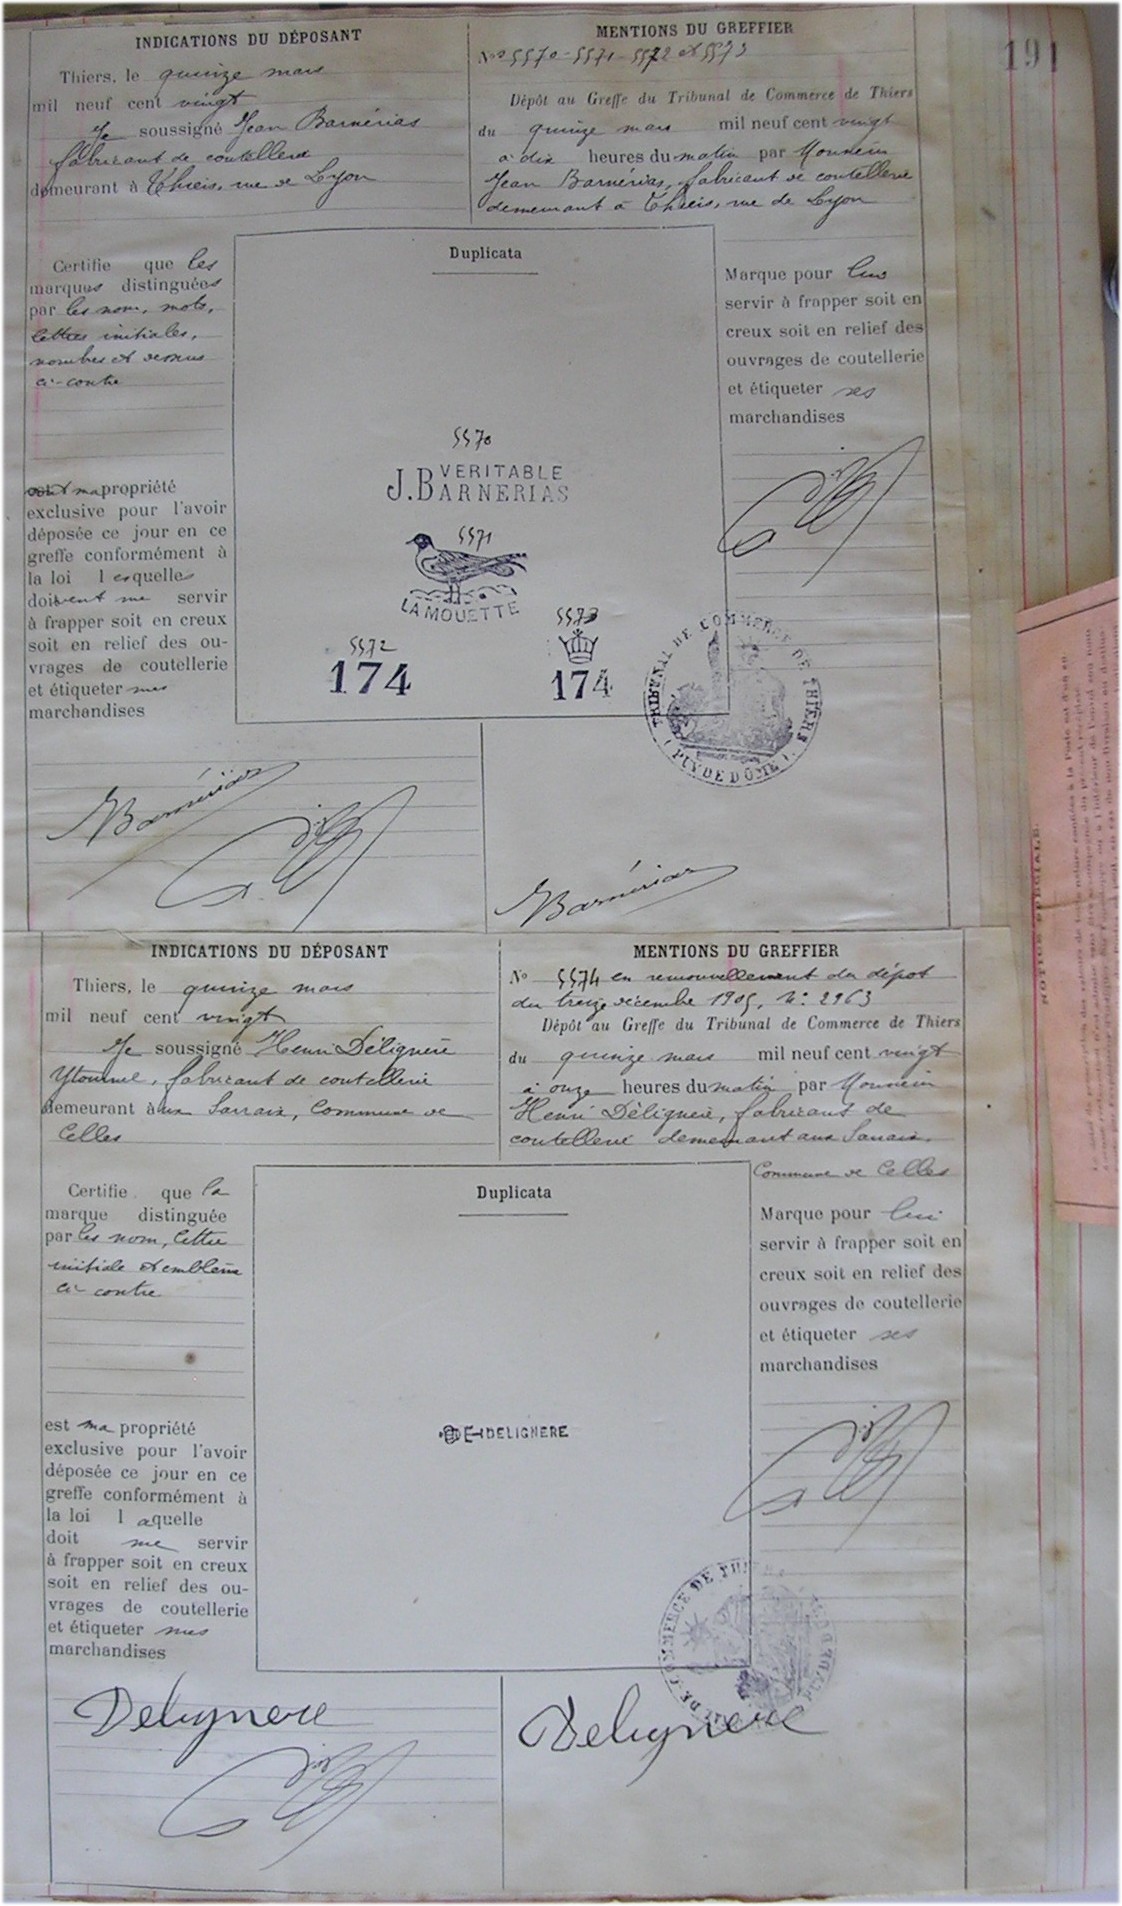 191
INDICATIONS DU DÉPOSANT
Thiers, le quinze mars
mil neuf cent vingt
Je soussigné Jean Barnérias
fabricant de coutellerie
demeurant à Thiers, rue de Lyon
MENTIONS DU GREFFIER
Nos 5570 - 5571 - 5572 et 5573
Dépôt au Greffe du Tribunal de Commerce de Thiers
du quinze mars mil neuf cent vingt
à dix heures du matin par Monsieur
Jean Barnérias, fabricant de coutellerie
demeurant à Thiers, rue de Lyon
Certifie que les
marques distinguées
par les nom, mots,
lettres initiales,
nombres et dessins
ci-contre
sont ma propriété
exclusive pour l'avoir
déposée ce jour en ce
greffe conformément à
la loi lesquelles
doivent me servir
à frapper soit en creux
soit en relief des ou-
vrages de coutellerie
et étiqueter mes
marchandises
Duplicata
5570
VERITABLE
J. BARNERIAS
5571
LA MOUETTE
5572
174
5573
174
Marque pour lui
servir à frapper soit en
creux soit en relief des
ouvrages de coutellerie
et étiqueter ses
marchandises
TRIBUNAL DE COMMERCE DE THIERS
(PUY DE DÔME)
Barnérias
Barnérias
INDICATIONS DU DÉPOSANT
Thiers, le quinze mars
mil neuf cent vingt
Je soussigné Henri Délignère
fabricant de coutellerie
demeurant aux Sarraix, Commune de
Celles
MENTIONS DU GREFFIER
No 5574 en renouvellement du dépôt
du treize décembre 1905, No 2963
Dépôt au Greffe du Tribunal de Commerce de Thiers
du quinze mars mil neuf cent vingt
à onze heures du matin par Monsieur
Henri Délignère, fabricant de
coutellerie demeurant aux Sarraix,
Commune de Celles
Certifie que la
marque distinguée
par les nom, lettre
initiale et emblème
ci-contre
est ma propriété
exclusive pour l'avoir
déposée ce jour en ce
greffe conformément à
la loi laquelle
doit me servir
à frapper soit en creux
soit en relief des ou-
vrages de coutellerie
et étiqueter mes
marchandises
Duplicata
DELIGNERE
Marque pour lui
servir à frapper soit en
creux soit en relief des
ouvrages de coutellerie
et étiqueter ses
marchandises
DE COMMERCE DE THIERS
Delignere
Delignere
NOTICE SPÉCIALE.